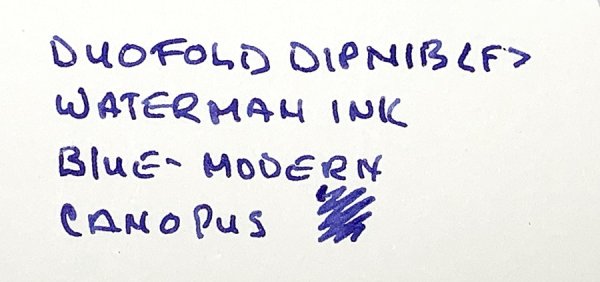 DUOFOLD DIPNIB <F>
WATERMAN INK
BluE- MODERN
CANOPUS